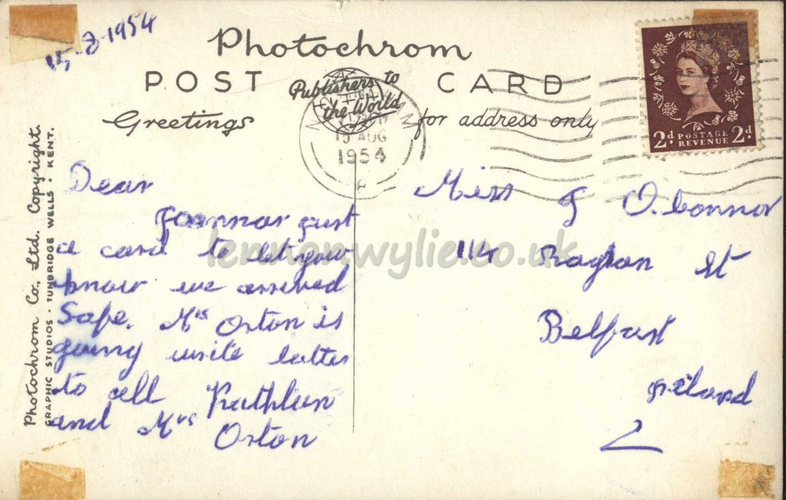 15-8-1954
Photochrom
POST CARD
Publishers to
the World
Greetings
for address only
15 AUG
1954
2d POSTAGE 2d
REVENUE
Photochrom Co., Ltd. Copyright.
GRAPHIC STUDIOS · TUNBRIDGE WELLS · KENT.
Dear
just
a card to let you
know we arrived
Safe. Mrs Orton is
going write latter
to all Kathleen
and Mrs Orton
Miss J O.Connor
114 Raglan St
Belfast
Ireland
lennonwylie.co.uk